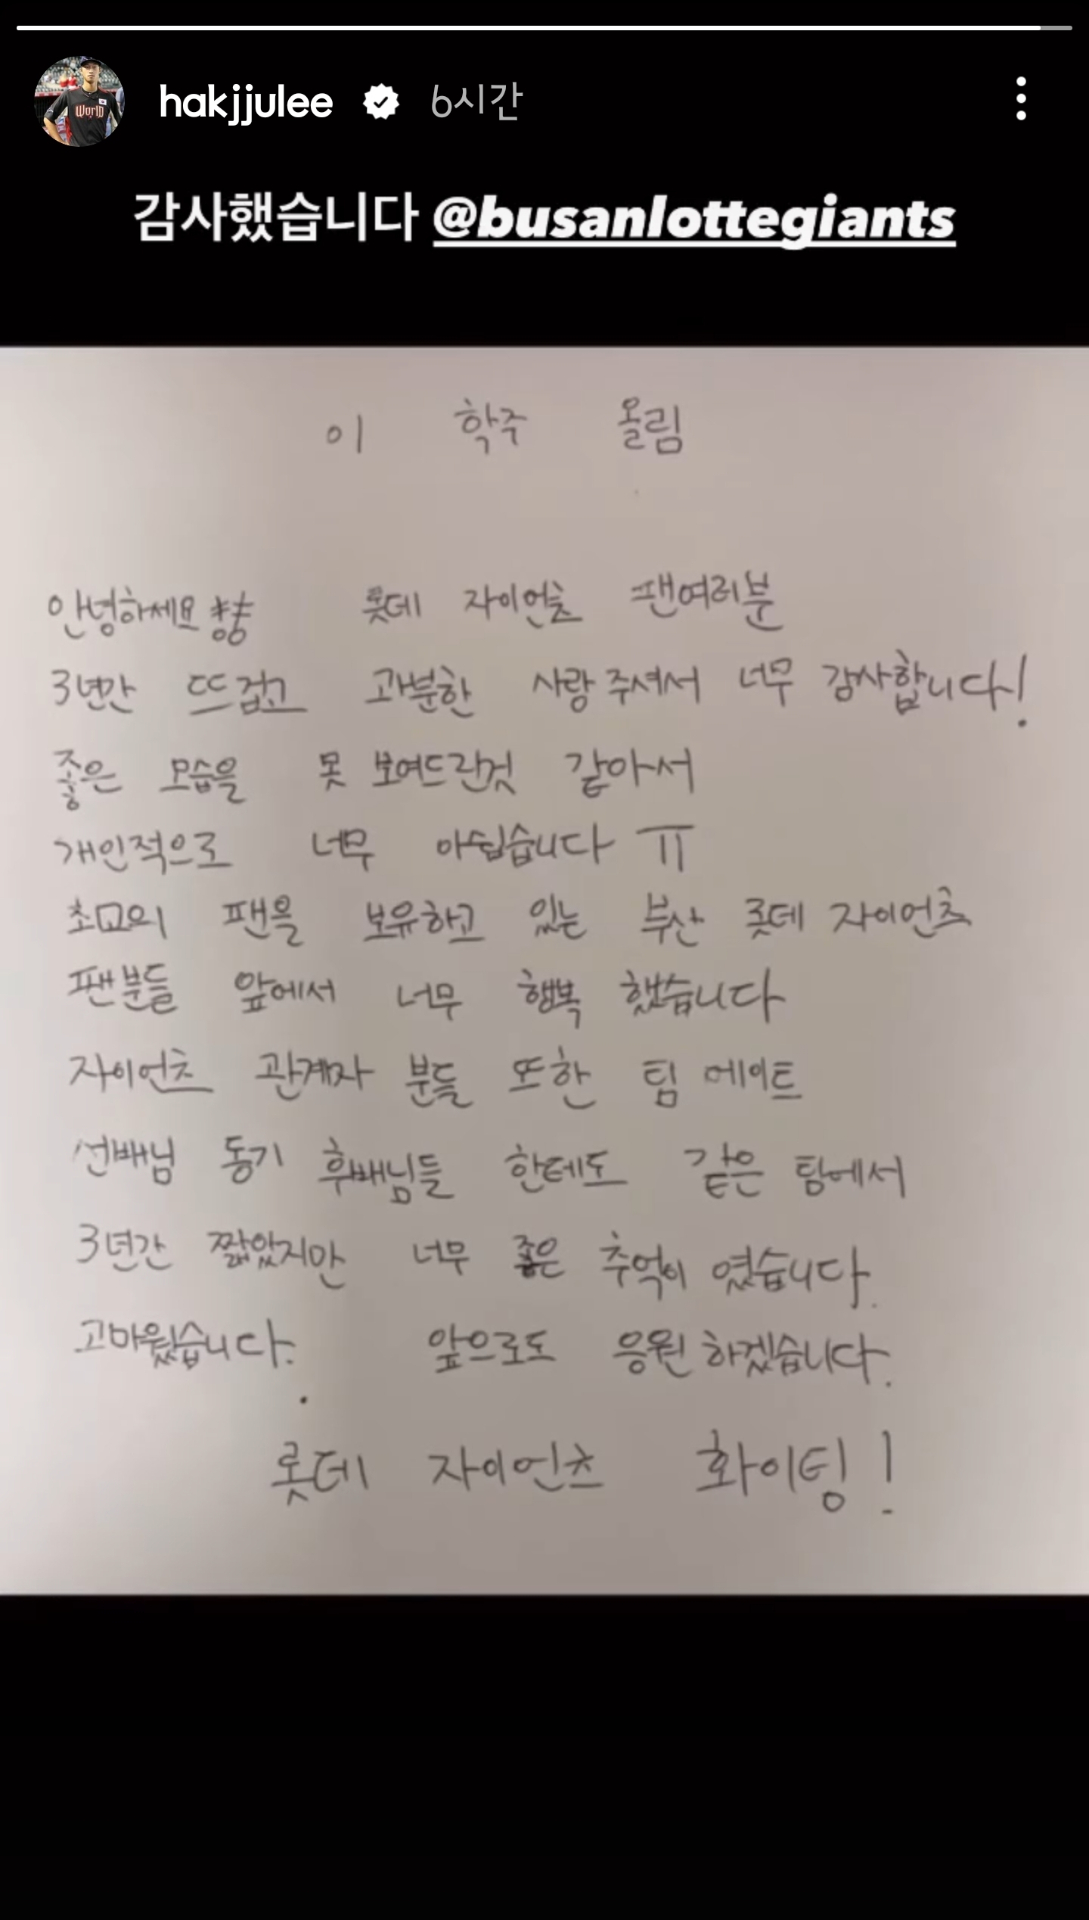 hakjjulee 6시간
감사했습니다 @busanlottegiants
이 학주 올림
안녕하세요 롯데 자이언츠 팬여러분
3년간 뜨겁고 과분한 사랑 주셔서 너무 감사합니다!
좋은 모습을 못 보여드린것 같아서
개인적으로 너무 아쉽습니다 ㅠ
초고의 팬을 보유하고 있는 부산 롯데 자이언츠
팬분들 앞에서 너무 행복 했습니다
자이언츠 관계자 분들 또한 팀 메이트
선배님 동기 후배님들 한테도 같은 팀에서
3년간 짧았지만 너무 좋은 추억이 였습니다.
고마웠습니다. 앞으로도 응원 하겠습니다.
롯데 자이언츠 화이팅!